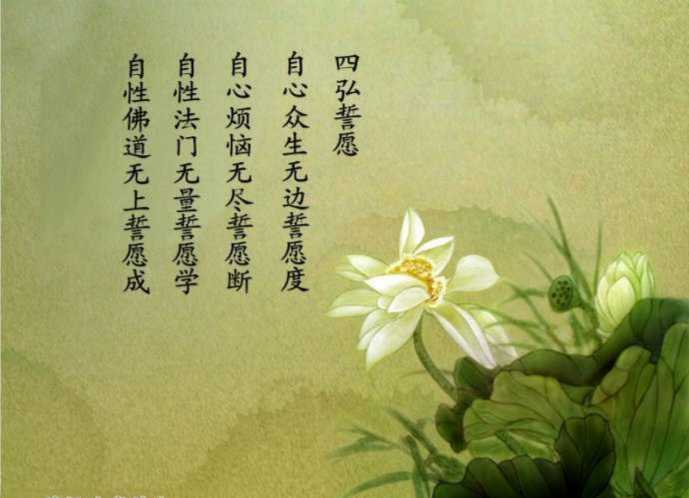 四弘誓愿
自心众生无边誓愿度
自心烦恼无尽誓愿断
自性法门无量誓愿学
自性佛道无上誓愿成